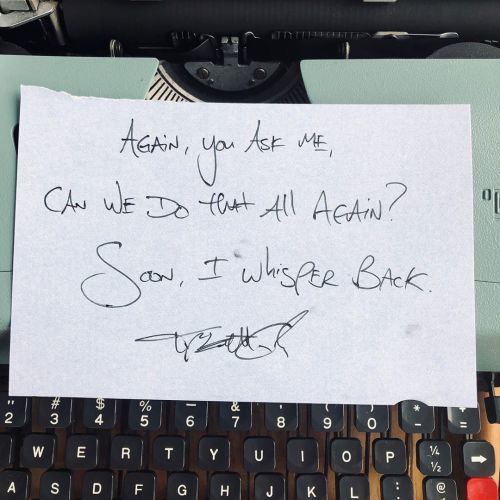 AGAiN, you ASK ME,
CAN WE DO that All AGAIN?
SOON, I whisPER BACK.
" # $ % & ( ) *
2 3 4 5 6 7 8 9 0 -
W E R T Y U I O P ¼ ½ →
A S D F G H J K L